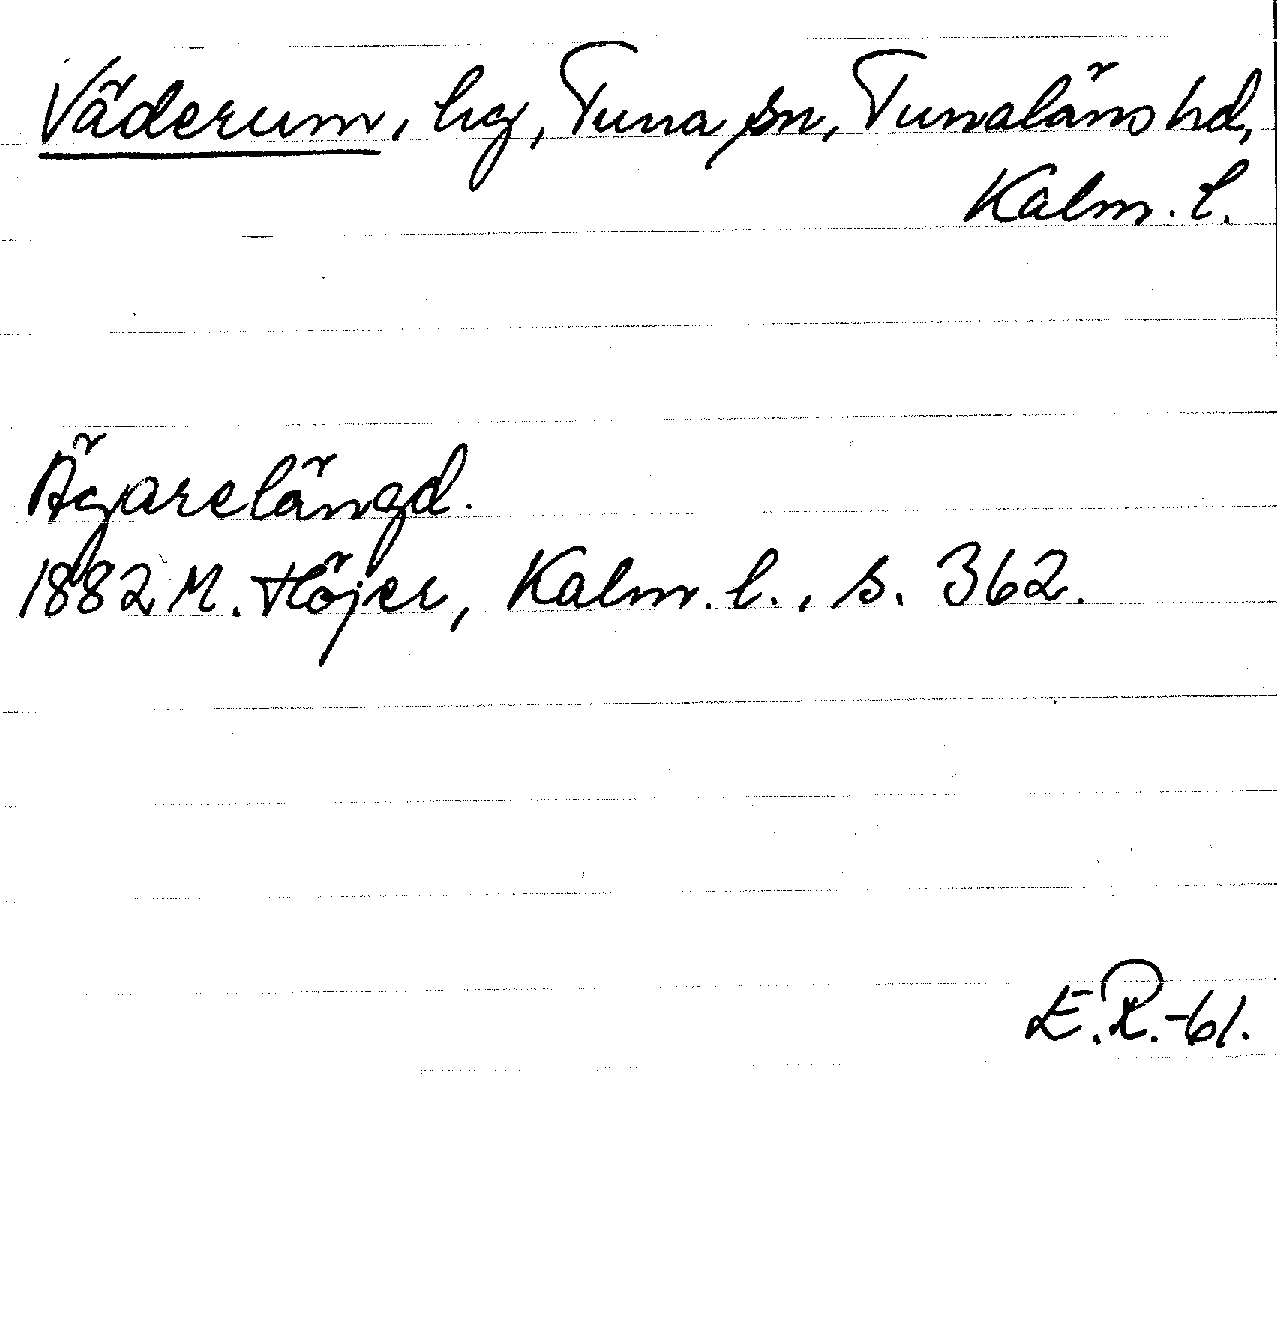 Väderum, hg, Tuna sn, Tunaläns hd,
Kalm. l.
Ägarelängd.
1882 M. Höjer, Kalm. l., s. 362.
E.R.-61.